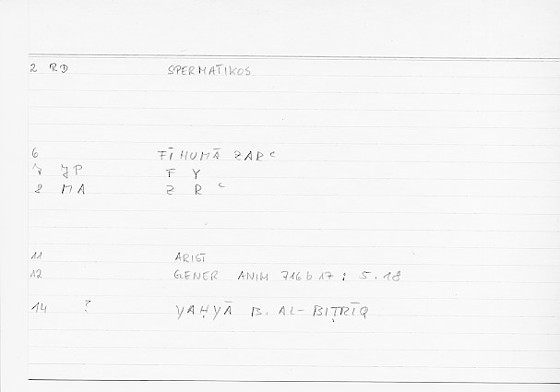 2 RD SPERMATIKOS
6 FĪHUMĀ ZARᶜ
7 JP F Y
8 MA Z R ᶜ
11 ARIST
12 GENER ANIM 716b17 : 5.18
14 ? YAḤYĀ B. AL-BIṬRĪQ